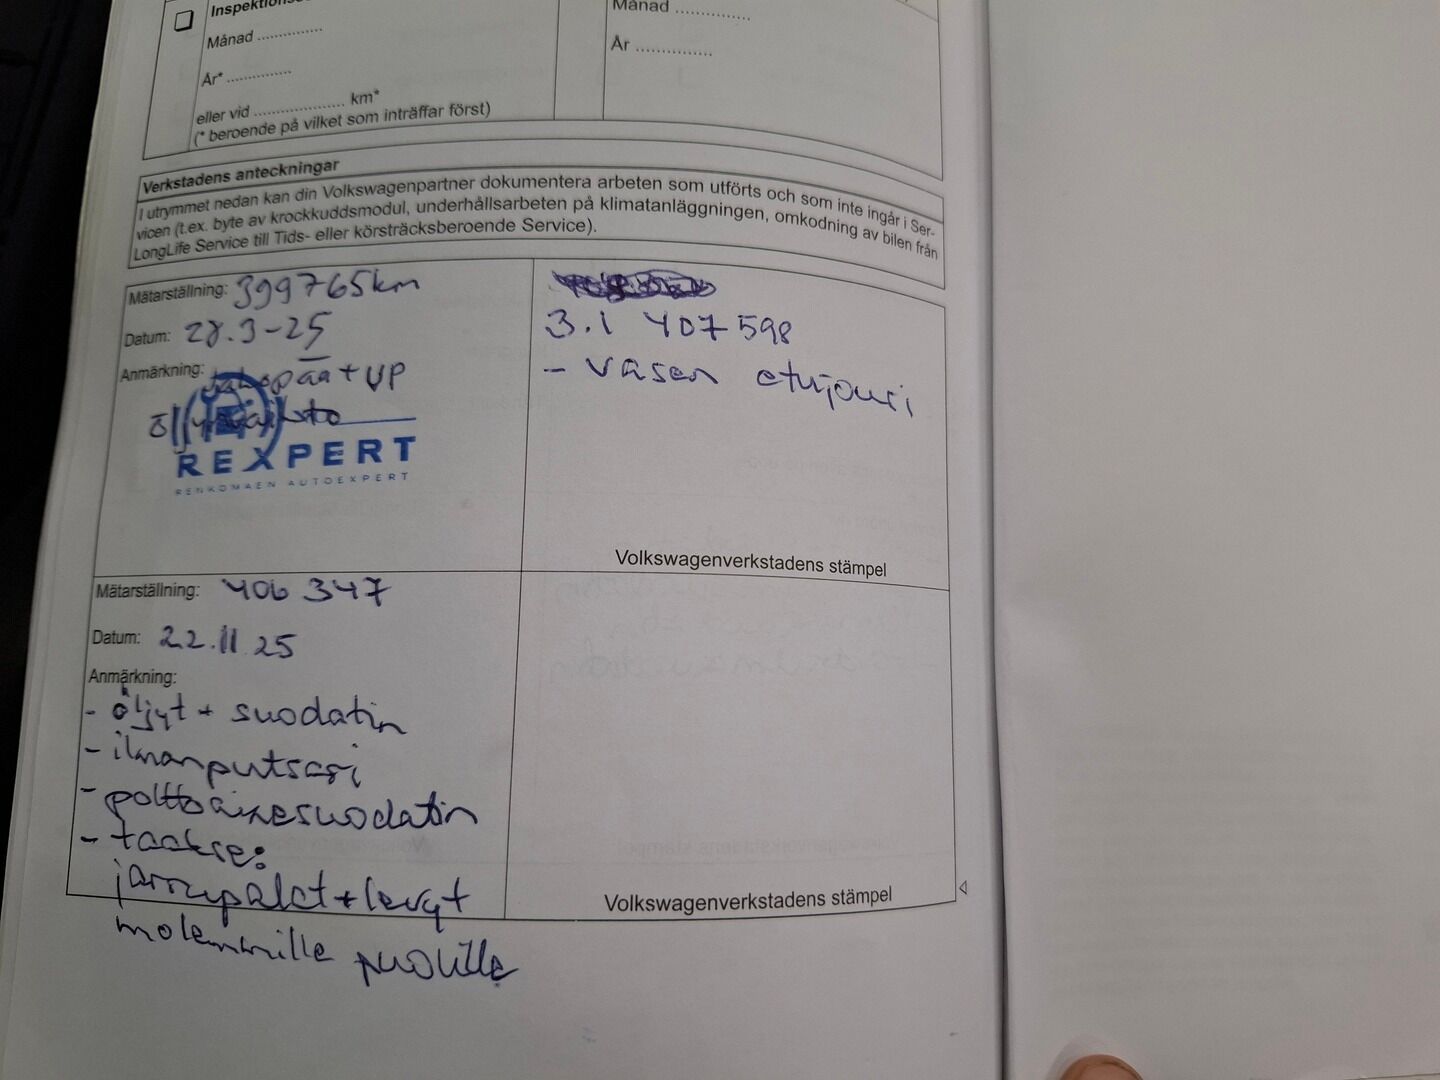 Månad ..............
År* ..............
eller vid .................... km*
(* beroende på vilket som inträffar först)
Månad ................
År ................
Verkstadens anteckningar
I utrymmet nedan kan din Volkswagenpartner dokumentera arbeten som utförts och som inte ingår i Ser-
vicen (t.ex. byte av krockkuddsmodul, underhållsarbeten på klimatanläggningen, omkodning av bilen från
LongLife Service till Tids- eller körsträcksberoende Service).
Mätarställning: 399765km
Datum: 28.3-25
Anmärkning: jakopää + VP
öljynvaihto
REXPERT
RENKOMAEN AUTOEXPERT
3.1 407598
- vasen etujousi
Volkswagenverkstadens stämpel
Mätarställning: 406 347
Datum: 22.11.25
Anmärkning:
- öljyt + suodatin
- ilmanputsari
- polttoainesuodatin
- taakse:
jarrupalat + levyt
molemmille puolille
Volkswagenverkstadens stämpel